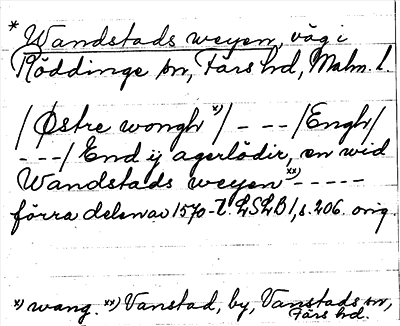 * Wandstads weyen, väg i
Röddinge sn, Färs hd, Malm. l.
/Østre wongh x)/ - - - /Engh/
- - -/ End ij agerlødir, en wid
Wandstads weyen xx) - - - - -
förra delen av 1570-t. LSLB 1, s. 206. orig.
x) wang. xx) Vanstad, by, Vanstads sn,
Färs hd.